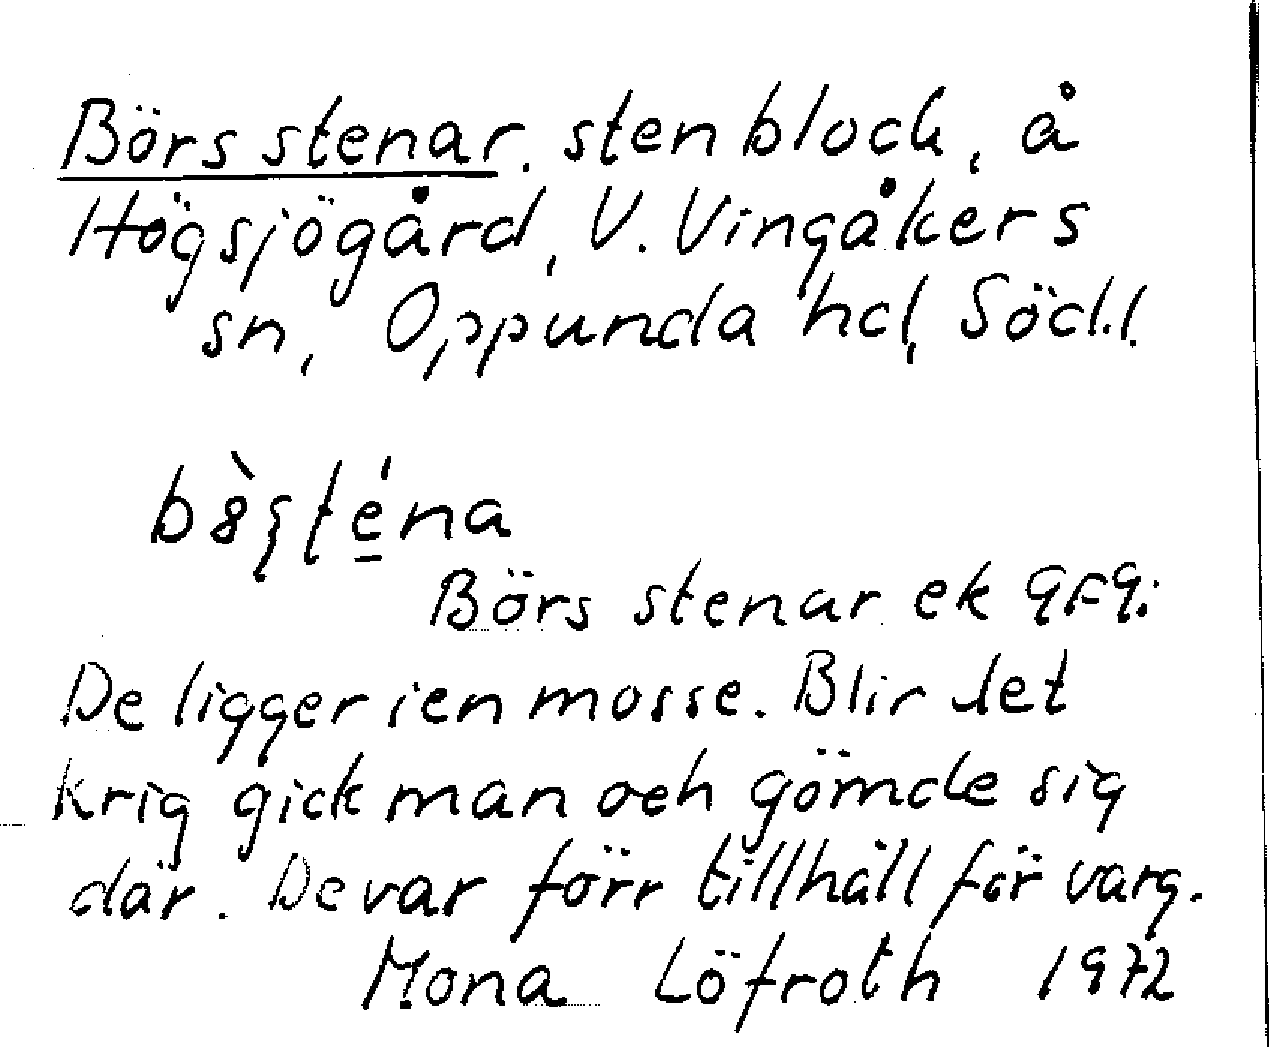 Börs stenar. stenblock, å
Högsjögård, V. Vingåkers
sn, Oppunda hd, Södl.
Börs stenar ek
De ligger i en mosse. Blir det
krig gick man och gömde sig
där. De var förr tillhåll för varg.
Mona Löfroth 1972